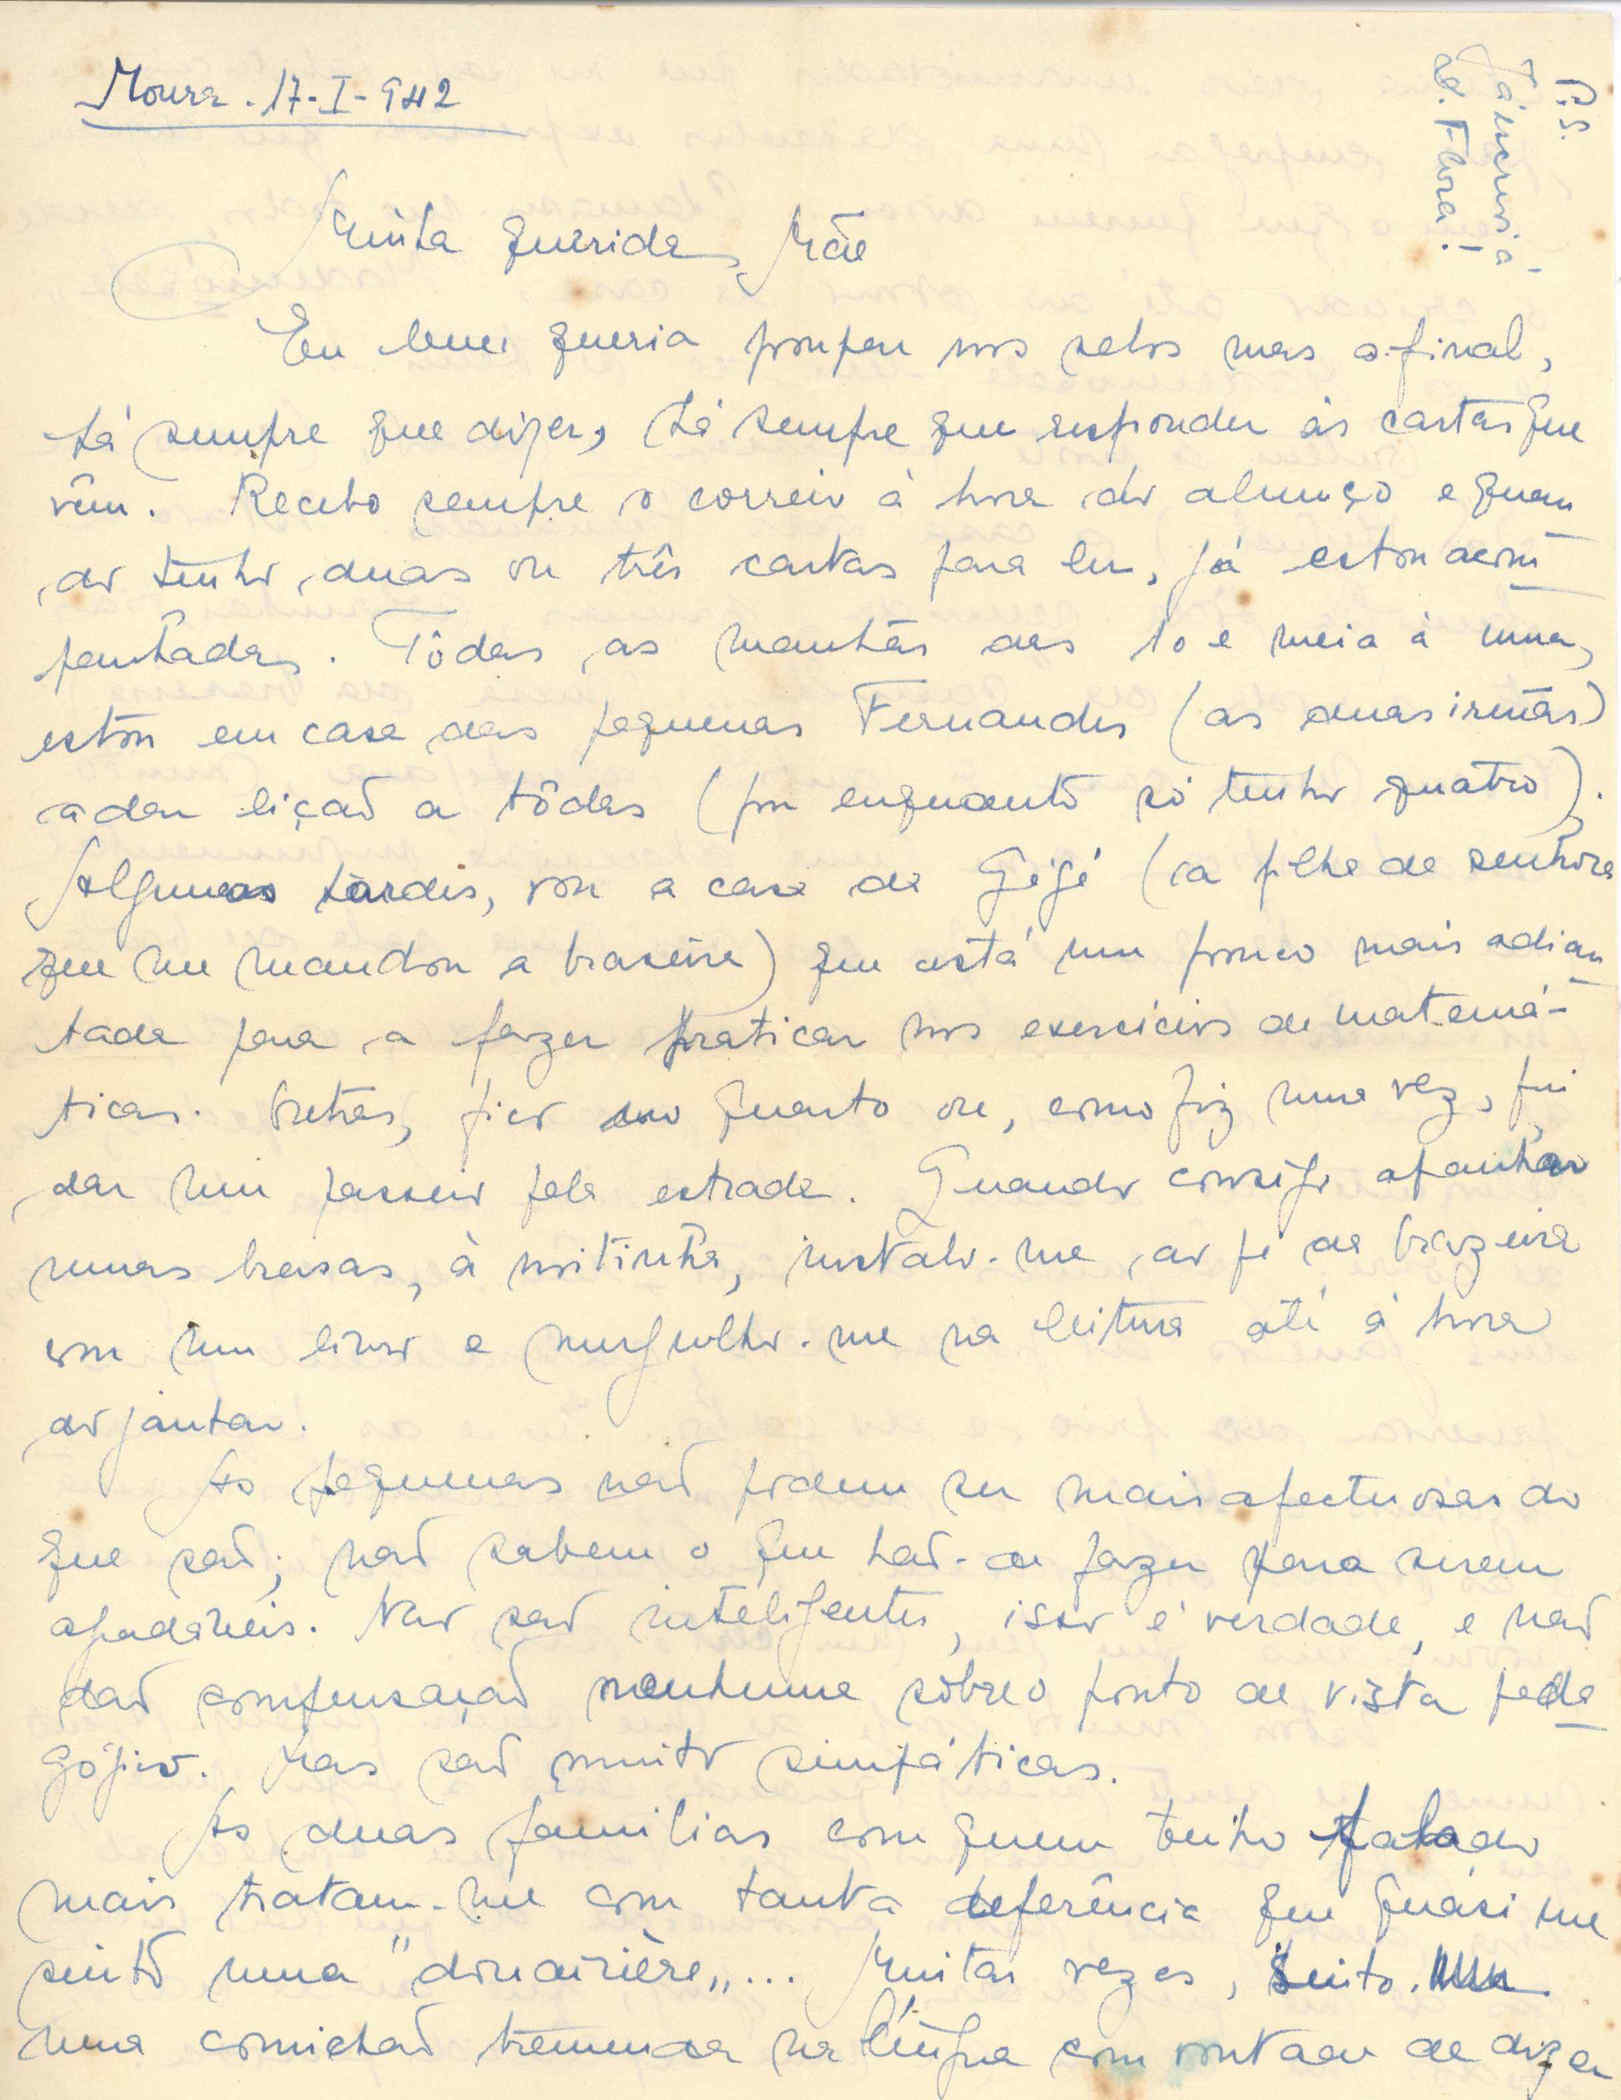 Moura. 17-I-942
P.S.
Já escrevi à
Sr. Flora!
Minha querida Mãe
Eu bem queria poupar nos selos mas afinal,
há sempre que dizer, há sempre que responder às cartas que
vêm. Recebo sempre o correio à hora do almoço e quan
do tenho duas ou três cartas para ler, já estou acom
panhada. Tôdas as manhãs das 10 e meia à uma,
estou em casa das pequenas Fernandes (as duas irmãs)
a dar liçaõ a tôdas (por enquanto só tenho quatro).
Algumas tardes, vou a casa da Gégé (a filha da senhora
que me mandou a braseira) que está um pouco mais adian
tada para a fazer praticar nos exercícios de matemá-
ticas. Outras, fico no quarto ou, como fiz uma vez, fui
dar um passeio pela estrada. Quando consigo apanhar
umas brasas, à noitinha, instalo-me ao pé da brazeira
com um livro e mergulho-me na leitura até à hora
do jantar.
As pequenas naõ podem ser mais afectuosas do
que saõ; naõ sabem o que haõ-de fazer para serem
agradáveis. Não saõ inteligentes, isso é verdade, e naõ
daõ compensaçaõ nenhuma sôbre o ponto de vista peda
gógico. Mas saõ muito simpáticas.
As duas familias com quem tenho falado
mais tratam-me com tanta deferência que quási me
sinto uma "douairière"... Muitas vezes, sinto
uma comichaõ tremenda na língua com vontade de dizer